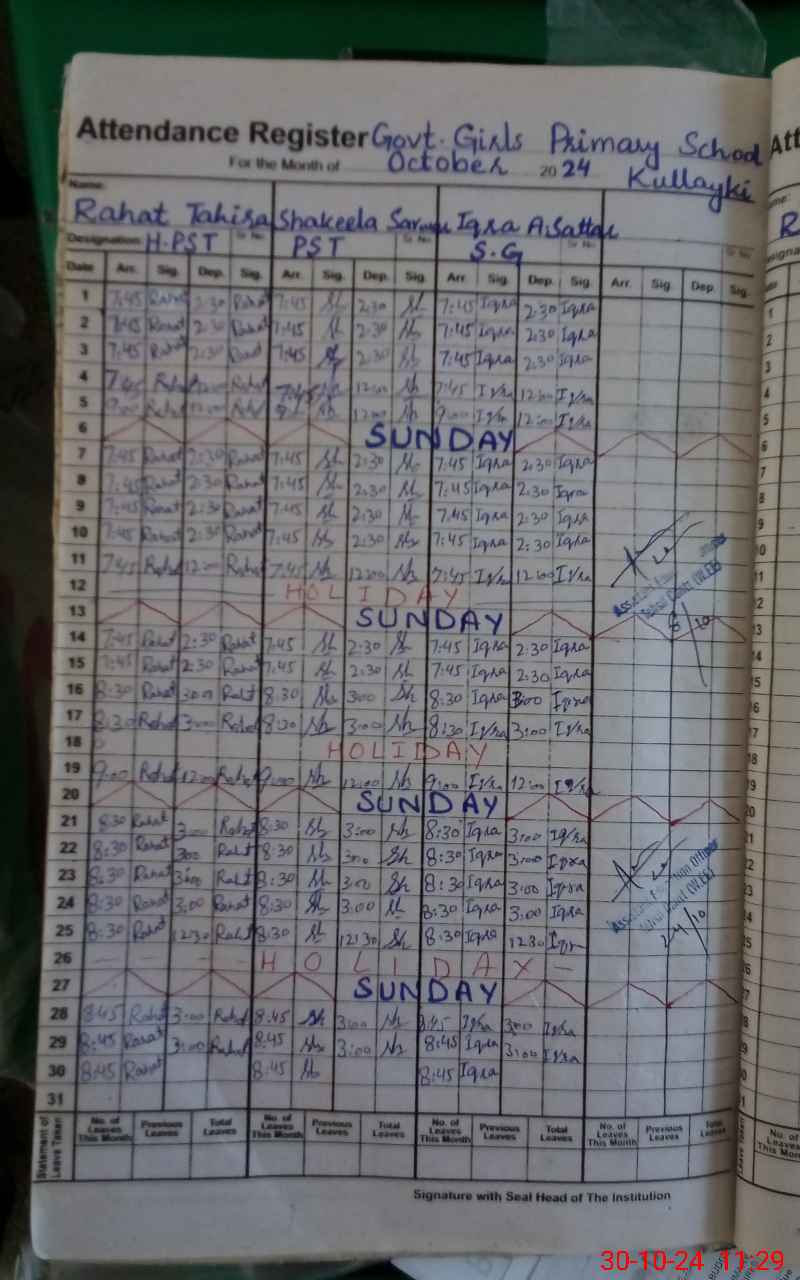 Attendance Register Govt. Girls Primary School
For the Month of October 2024 Kullayki
Name:
Rahat Tahira Shakeela Iqra A.Sattar
Designation H.PST Sr No PST Sr No S.G Sr No Sr No
Date Arr. Sig. Dep. Sig. Arr. Sig. Dep. Sig. Arr. Sig. Dep. Sig. Arr. Sig. Dep. Sig.
1 7:45 Rahat 2:30 Rahat 7:45 Sh 2:30 Sh 7:45 Iqra 2:30 Iqra
2 7:45 Rahat 2:30 Rahat 7:45 Sh 2:30 Sh 7:45 Iqra 2:30 Iqra
3 7:45 Rahat 2:30 Rahat 7:45 Sh 2:30 Sh 7:45 Iqra 2:30 Iqra
4 7:45 Rahat 12:00 Rahat 7:45 Sh 12:00 Sh 7:45 Iqra 12:00 Iqra
5 9:00 Rahat 12:00 Rahat Sh 12:00 Sh 9:00 Iqra 12:00 Iqra
6 SUNDAY
7 7:45 Rahat 2:30 Rahat 7:45 Sh 2:30 Sh 7:45 Iqra 2:30 Iqra
8 7:45 Rahat 2:30 Rahat 7:45 Sh 2:30 Sh 7:45 Iqra 2:30 Iqra
9 7:45 Rahat 2:30 Rahat 7:45 Sh 2:30 Sh 7:45 Iqra 2:30 Iqra
10 7:45 Rahat 2:30 Rahat 7:45 Sh 2:30 Sh 7:45 Iqra 2:30 Iqra
11 7:45 Rahat 12:00 Rahat 7:45 Sh 12:00 Sh 7:45 Iqra 12:00 Iqra
12 HOLIDAY
13 SUNDAY
8/10
14 7:45 Rahat 2:30 Rahat 7:45 Sh 2:30 Sh 7:45 Iqra 2:30 Iqra
15 7:45 Rahat 2:30 Rahat 7:45 Sh 2:30 Sh 7:45 Iqra 2:30 Iqra
16 8:30 Rahat 3:00 Rahat 8:30 Sh 3:00 Sh 8:30 Iqra 3:00 Iqra
17 8:30 Rahat 3:00 Rahat 8:30 Sh 3:00 Sh 8:30 Iqra 3:00 Iqra
18 HOLIDAY
19 9:00 Rahat 12:00 Rahat 9:00 Sh 12:00 Sh 9:00 Iqra 12:00 Iqra
20 SUNDAY
21 8:30 Rahat 3:00 Rahat 8:30 Sh 3:00 Sh 8:30 Iqra 3:00 Iqra
22 8:30 Rahat 3:00 Rahat 8:30 Sh 3:00 Sh 8:30 Iqra 3:00 Iqra
23 8:30 Rahat 3:00 Rahat 8:30 Sh 3:00 Sh 8:30 Iqra 3:00 Iqra
24 8:30 Rahat 3:00 Rahat 8:30 Sh 3:00 Sh 8:30 Iqra 3:00 Iqra
25 8:30 Rahat 12:30 Rahat 8:30 Sh 12:30 Sh 8:30 Iqra 12:30 Iqra
24/10
26 HOLIDAY
27 SUNDAY
28 8:45 Rahat 3:00 Rahat 8:45 Sh 3:00 Sh 8:45 Iqra 3:00 Iqra
29 8:45 Rahat 3:00 Rahat 8:45 Sh 3:00 Sh 8:45 Iqra 3:00 Iqra
30 8:45 Rahat 8:45 Sh 8:45 Iqra
31
Statement of Leave Taken
No. of Leaves This Month Previous Leaves Total Leaves No. of Leaves This Month Previous Leaves Total Leaves No. of Leaves This Month Previous Leaves Total Leaves No. of Leaves This Month Previous Leaves Total Leaves
Signature with Seal Head of The Institution
30-10-24 11:29